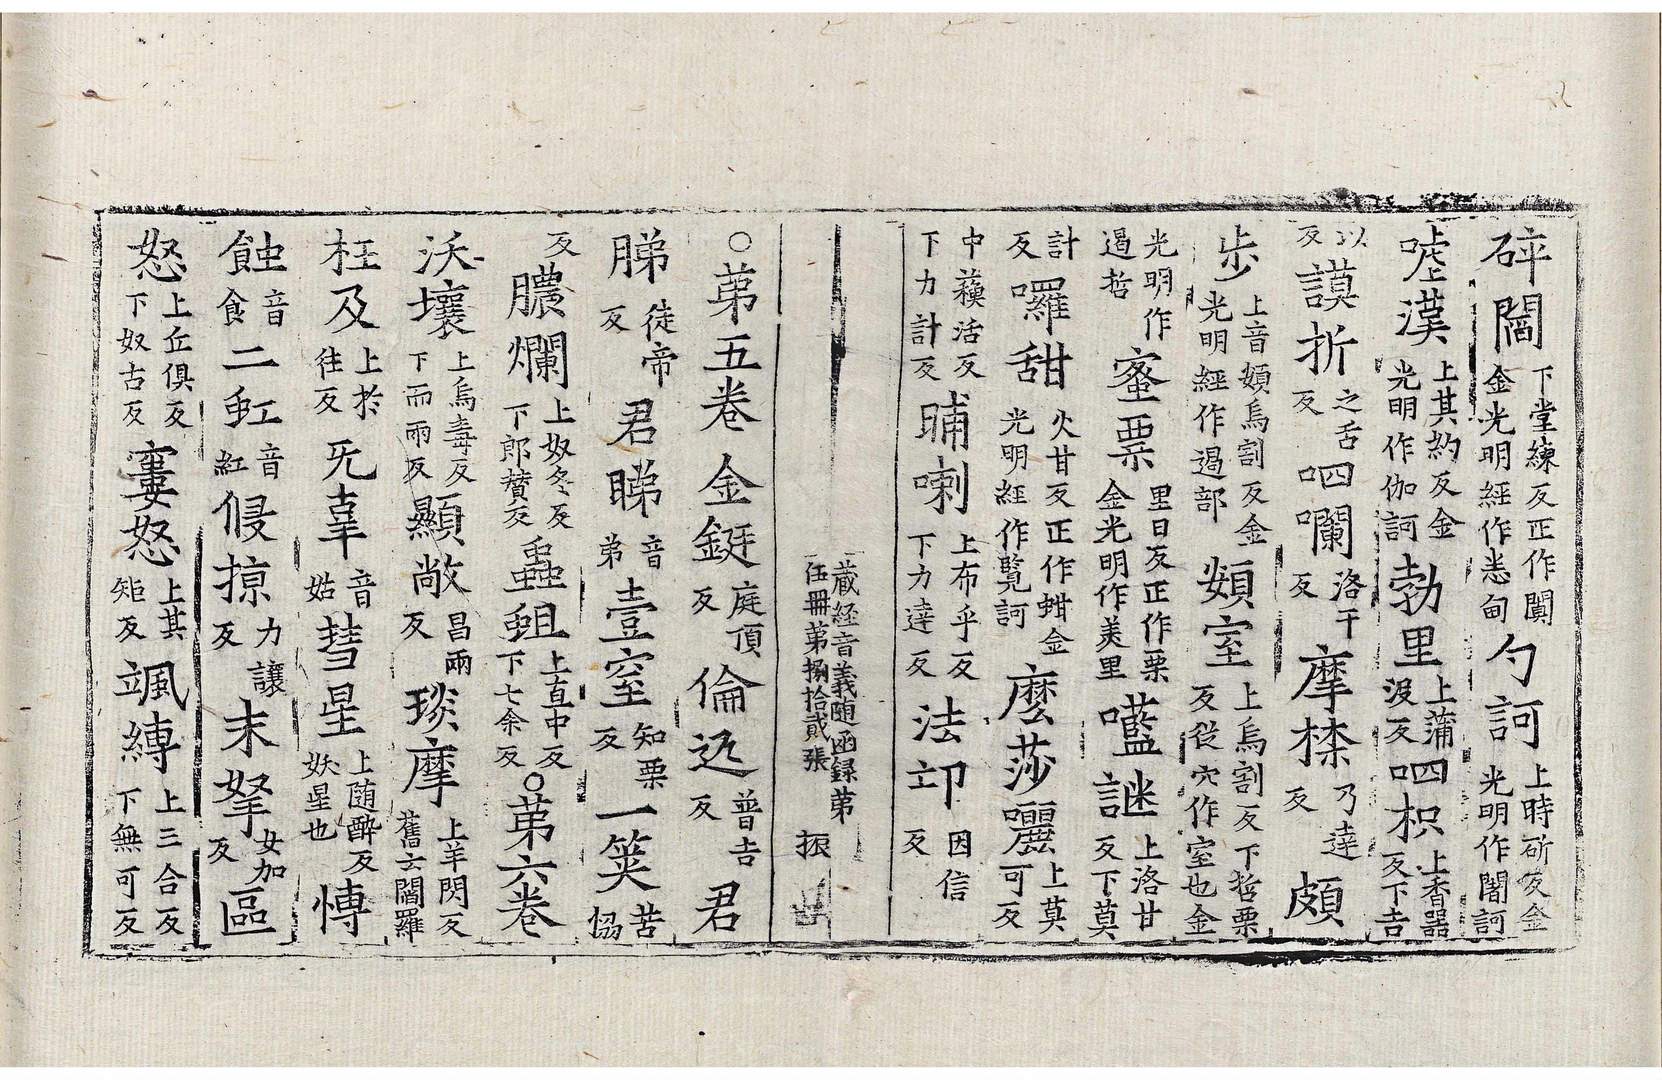 碎闇下堂練反正作闐金光明經作恙甸勺訶上時斫反金光明作闇訶
㗌漢上其約反金光明作伽訶勃里上蒲沒反呬枳上香器反下吉
以反謨折之舌反呬囒洛干反摩㮏乃達反頗
步上音頞烏割反金光明經作遏部頞窒上烏割反下哲栗反從穴作室也金
光明作遏哲蜜票里日反正作栗金光明作美里㘕謎上洛甘反下莫
計反囉甜火甘反正作蚶金光明經作覧訶麼莎㘑上莫可反
中蘓活反下力計反晡喇上布乎反下力達反法卬因信反
藏經音義随函録第伍冊第捌拾貳張 振
○第五卷金鋌庭頂反倫迯普吉反君
睇徒帝反君睇音弟壹窒知栗反一筴苦協
反膿爛上奴冬反下郎賛反蟲蛆上直中反下七余反○第六卷
沃壤上烏毒反下而兩反顯敞昌兩反琰摩上羊閃反舊云閻羅
枉及上於往反旡辜音姑彗星上随醉反妖星也慱
蝕音食二虹音紅侵掠力讓反末拏女加反區
怒上丘俱反下奴古反寠怒上其矩反颯縛上三合反下無可反